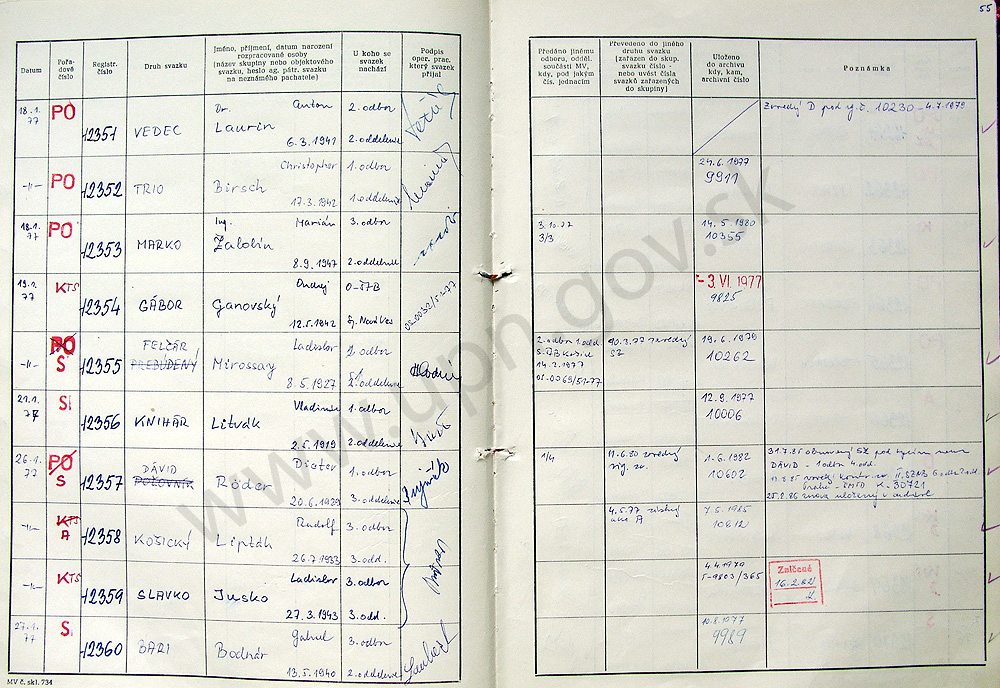 55
Datum
Pořadové číslo
Registr. číslo
Druh svazku
Jméno, příjmení, datum narození
rozpracované osoby
(název skupiny nebo objektového
svazku, heslo ag. pátr. svazku
na neznámého pachatele)
U koho se
svazek
nachází
Podpis
oper. prac.
který svazek
přijal
Předáno jinému
odboru, odděl.
součásti MV,
kdy, pod jakým
čís. jednacím
Převedeno do jiného
druhu svazku
(zařazen do skup.
svazku číslo -
nebo uvést čísla
svazků zařazených
do skupiny)
Uloženo
do archivu
kdy, kam,
archivní číslo
Poznámka
18.1.
77
PO
12351
VEDEC
Dr. Anton
Laurin
6.3.1941
2. odbor
2. oddelenie
10230 - 4.7.1979
-11-
PO
12352
TRIO
Christopher
Birsch
17.3.1942
1. odbor
1. oddelenie
24.6.1977
9911
18.1.
77
PO
12353
MARKO
Ing. Marián
Žalobin
8.9.1947
3. odbor
2. oddelenie
3.10.77
3/3
14.5.1980
10355
19.1.
77
KTS
12354
GÁBOR
Ondrej
Ganovský
12.5.1942
O-ŠTB
Sp. Nová Ves
OS-0032/51-77
- 3. VI. 1977
9825
-11-
PO
S
12355
FELČAR
PREBÚDENÝ
Ladislav
Mirossay
8.5.1927
2. odbor
2. oddelenie
2. odbor 1. odd
14.2.1977
OS-0069/51-77
19.6.1979
10262
21.1.
77
SI
12356
KNIHÁR
Vladimír
Litvák
2.5.1919
1. odbor
2. oddelenie
12.9.1977
10006
26.1.
77
PO
S
12357
DÁVID
POĽOVNÍK
Dieter
Röder
20.6.1929
1. odbor
3. oddelenie
1/4
11.6.80
1.6.1982
10602
31.7.85
DÁVID - 1 odbor 4. odd.
K-30721
25.8.86
-11-
KTS
A
12358
KOŠICKÝ
Rudolf
Lipták
26.7.1933
3. odbor
3. odd.
4.5.77
7.5.1985
10812
-11-
KTS
12359
SLAVKO
Ladislav
Jusko
27.3.1943
3. odbor
3. odd.
4.4.1979
T-9803/365
Zničené
16.2.82
27.1.
77
S
12360
BARI
Gabriel
Bodnár
13.5.1940
3. odbor
2. oddelenie
10.8.1977
9989
MV č. skl. 734
www.upn.gov.sk